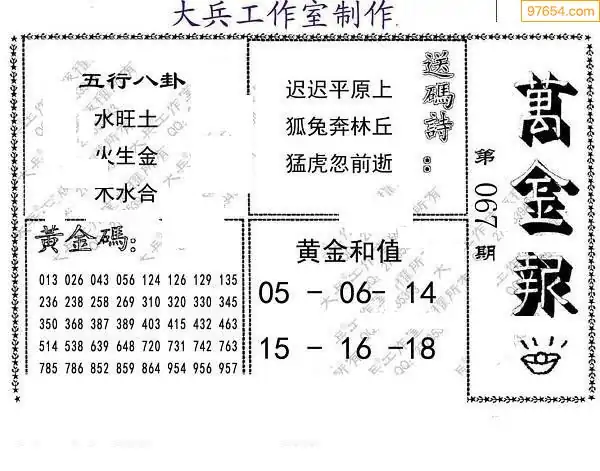 大兵工作室制作
97654.com
五行八卦
水旺土
火生金
木水合
送碼詩:
迟迟平原上
狐兔奔林丘
猛虎忽前逝
萬金報
第067期
黃金碼:
013 026 043 056 124 126 129 135
236 238 258 269 310 320 330 345
350 368 387 389 403 415 432 463
514 538 639 648 720 731 742 763
785 786 852 859 864 954 956 957
黄金和值
05 - 06- 14
15 - 16 -18